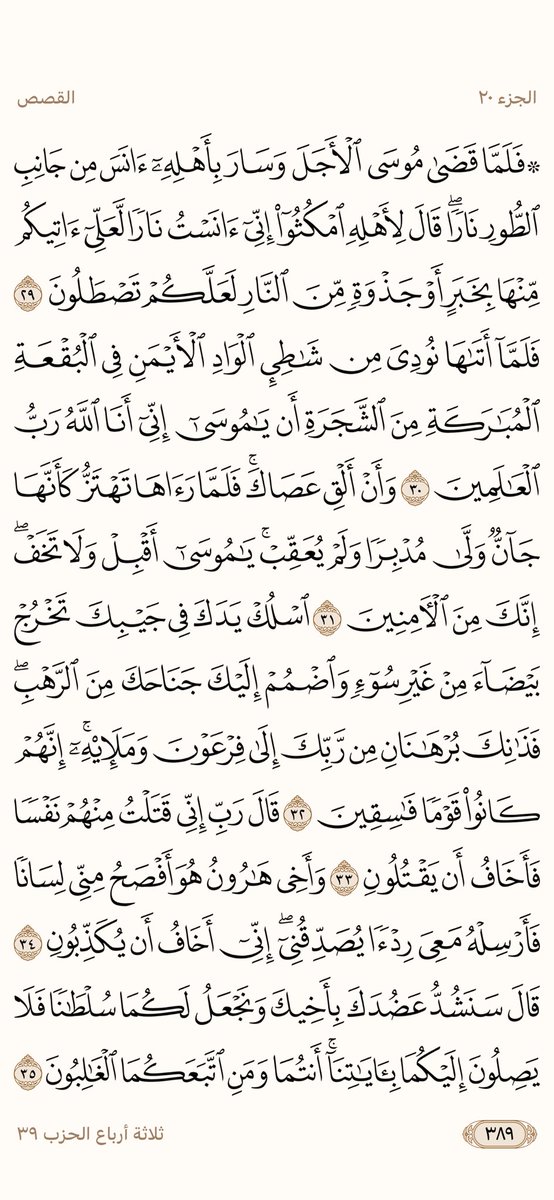 الجزء ٢٠
القصص
۞ فَلَمَّا قَضَىٰ مُوسَى ٱلْأَجَلَ وَسَارَ بِأَهْلِهِۦٓ ءَانَسَ مِن جَانِبِ
ٱلطُّورِ نَارًاۖ قَالَ لِأَهْلِهِ ٱمْكُثُوٓا۟ إِنِّىٓ ءَانَسْتُ نَارًا لَّعَلِّىٓ ءَاتِيكُم
مِّنْهَا بِخَبَرٍ أَوْ جَذْوَةٍ مِّنَ ٱلنَّارِ لَعَلَّكُمْ تَصْطَلُونَ ٢٩
فَلَمَّآ أَتَىٰهَا نُودِىَ مِن شَـٰطِئِ ٱلْوَادِ ٱلْأَيْمَنِ فِى ٱلْبُقْعَةِ
ٱلْمُبَـٰرَكَةِ مِنَ ٱلشَّجَرَةِ أَن يَـٰمُوسَىٰٓ إِنِّىٓ أَنَا ٱللَّهُ رَبُّ
ٱلْعَـٰلَمِينَ ٣٠ وَأَنْ أَلْقِ عَصَاكَۚ فَلَمَّا رَءَاهَا تَهْتَزُّ كَأَنَّهَا
جَآنٌّ وَلَّىٰ مُدْبِرًا وَلَمْ يُعَقِّبْۚ يَـٰمُوسَىٰٓ أَقْبِلْ وَلَا تَخَفْۖ
إِنَّكَ مِنَ ٱلْـَٔامِنِينَ ٣١ ٱسْلُكْ يَدَكَ فِى جَيْبِكَ تَخْرُجْ
بَيْضَآءَ مِنْ غَيْرِ سُوٓءٍ وَٱضْمُمْ إِلَيْكَ جَنَاحَكَ مِنَ ٱلرَّهْبِۖ
فَذَٰنِكَ بُرْهَـٰنَانِ مِن رَّبِّكَ إِلَىٰ فِرْعَوْنَ وَمَلَإِي۟هِۦٓۚ إِنَّهُمْ
كَانُوا۟ قَوْمًا فَـٰسِقِينَ ٣٢ قَالَ رَبِّ إِنِّى قَتَلْتُ مِنْهُمْ نَفْسًا
فَأَخَافُ أَن يَقْتُلُونِ ٣٣ وَأَخِى هَـٰرُونُ هُوَ أَفْصَحُ مِنِّى لِسَانًا
فَأَرْسِلْهُ مَعِىَ رِدْءًا يُصَدِّقُنِىٓۖ إِنِّىٓ أَخَافُ أَن يُكَذِّبُونِ ٣٤
قَالَ سَنَشُدُّ عَضُدَكَ بِأَخِيكَ وَنَجْعَلُ لَكُمَا سُلْطَـٰنًا فَلَا
يَصِلُونَ إِلَيْكُمَا بِـَٔايَـٰتِنَآۚ أَنتُمَا وَمَنِ ٱتَّبَعَكُمَا ٱلْغَـٰلِبُونَ ٣٥
٣٨٩
ثلاثة أرباع الحزب ٣٩